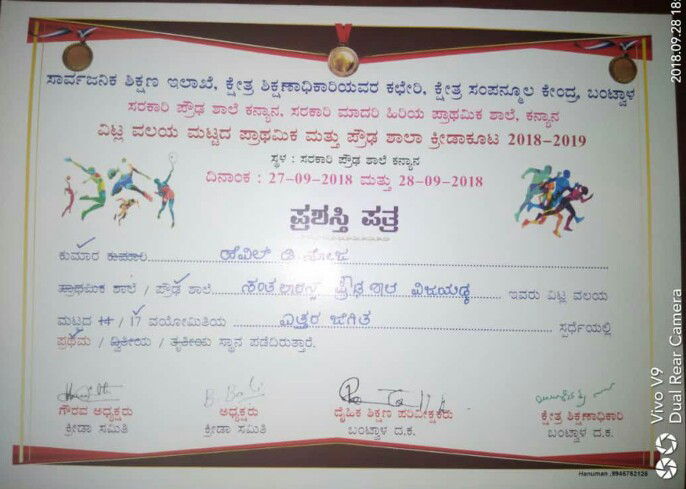 ಸಾರ್ವಜನಿಕ ಶಿಕ್ಷಣ ಇಲಾಖೆ, ಕ್ಷೇತ್ರ ಶಿಕ್ಷಣಾಧಿಕಾರಿಯವರ ಕಛೇರಿ, ಕ್ಷೇತ್ರ ಸಂಪನ್ಮೂಲ ಕೇಂದ್ರ, ಬಂಟ್ವಾಳ
ಸರಕಾರಿ ಪ್ರೌಢ ಶಾಲೆ ಕನ್ಯಾನ, ಸರಕಾರಿ ಮಾದರಿ ಹಿರಿಯ ಪ್ರಾಥಮಿಕ ಶಾಲೆ, ಕನ್ಯಾನ
ವಿಟ್ಲ ವಲಯ ಮಟ್ಟದ ಪ್ರಾಥಮಿಕ ಮತ್ತು ಪ್ರೌಢ ಶಾಲಾ ಕ್ರೀಡಾಕೂಟ 2018-2019
ಸ್ಥಳ : ಸರಕಾರಿ ಪ್ರೌಢ ಶಾಲೆ ಕನ್ಯಾನ
ದಿನಾಂಕ : 27-09-2018 ಮತ್ತು 28-09-2018
ಪ್ರಶಸ್ತಿ ಪತ್ರ
ಕುಮಾರ ಕುಮಾರಿ ಡಿ
ಪ್ರಾಥಮಿಕ ಶಾಲೆ / ಪ್ರೌಢ ಶಾಲೆ ಪ್ರೌಢ ಶಾಲೆ ಇವರು ವಿಟ್ಲ ವಲಯ
ಮಟ್ಟದ 14 / 17 ವಯೋಮಿತಿಯ ಎತ್ತರ ಜಿಗಿತ ಸ್ಪರ್ಧೆಯಲ್ಲಿ
ಪ್ರಥಮ / ದ್ವಿತೀಯ / ತೃತೀಯ ಸ್ಥಾನ ಪಡೆದಿರುತ್ತಾರೆ.
ಗೌರವ ಅಧ್ಯಕ್ಷರು ಅಧ್ಯಕ್ಷರು ದೈಹಿಕ ಶಿಕ್ಷಣ ಪರಿವೀಕ್ಷಕರು ಕ್ಷೇತ್ರ ಶಿಕ್ಷಣಾಧಿಕಾರಿ
ಕ್ರೀಡಾ ಸಮಿತಿ ಕ್ರೀಡಾ ಸಮಿತಿ ಬಂಟ್ವಾಳ ದ.ಕ. ಬಂಟ್ವಾಳ ದ.ಕ.
Hanuman
2018.09.28 18:
Vivo V9
Dual Rear Camera